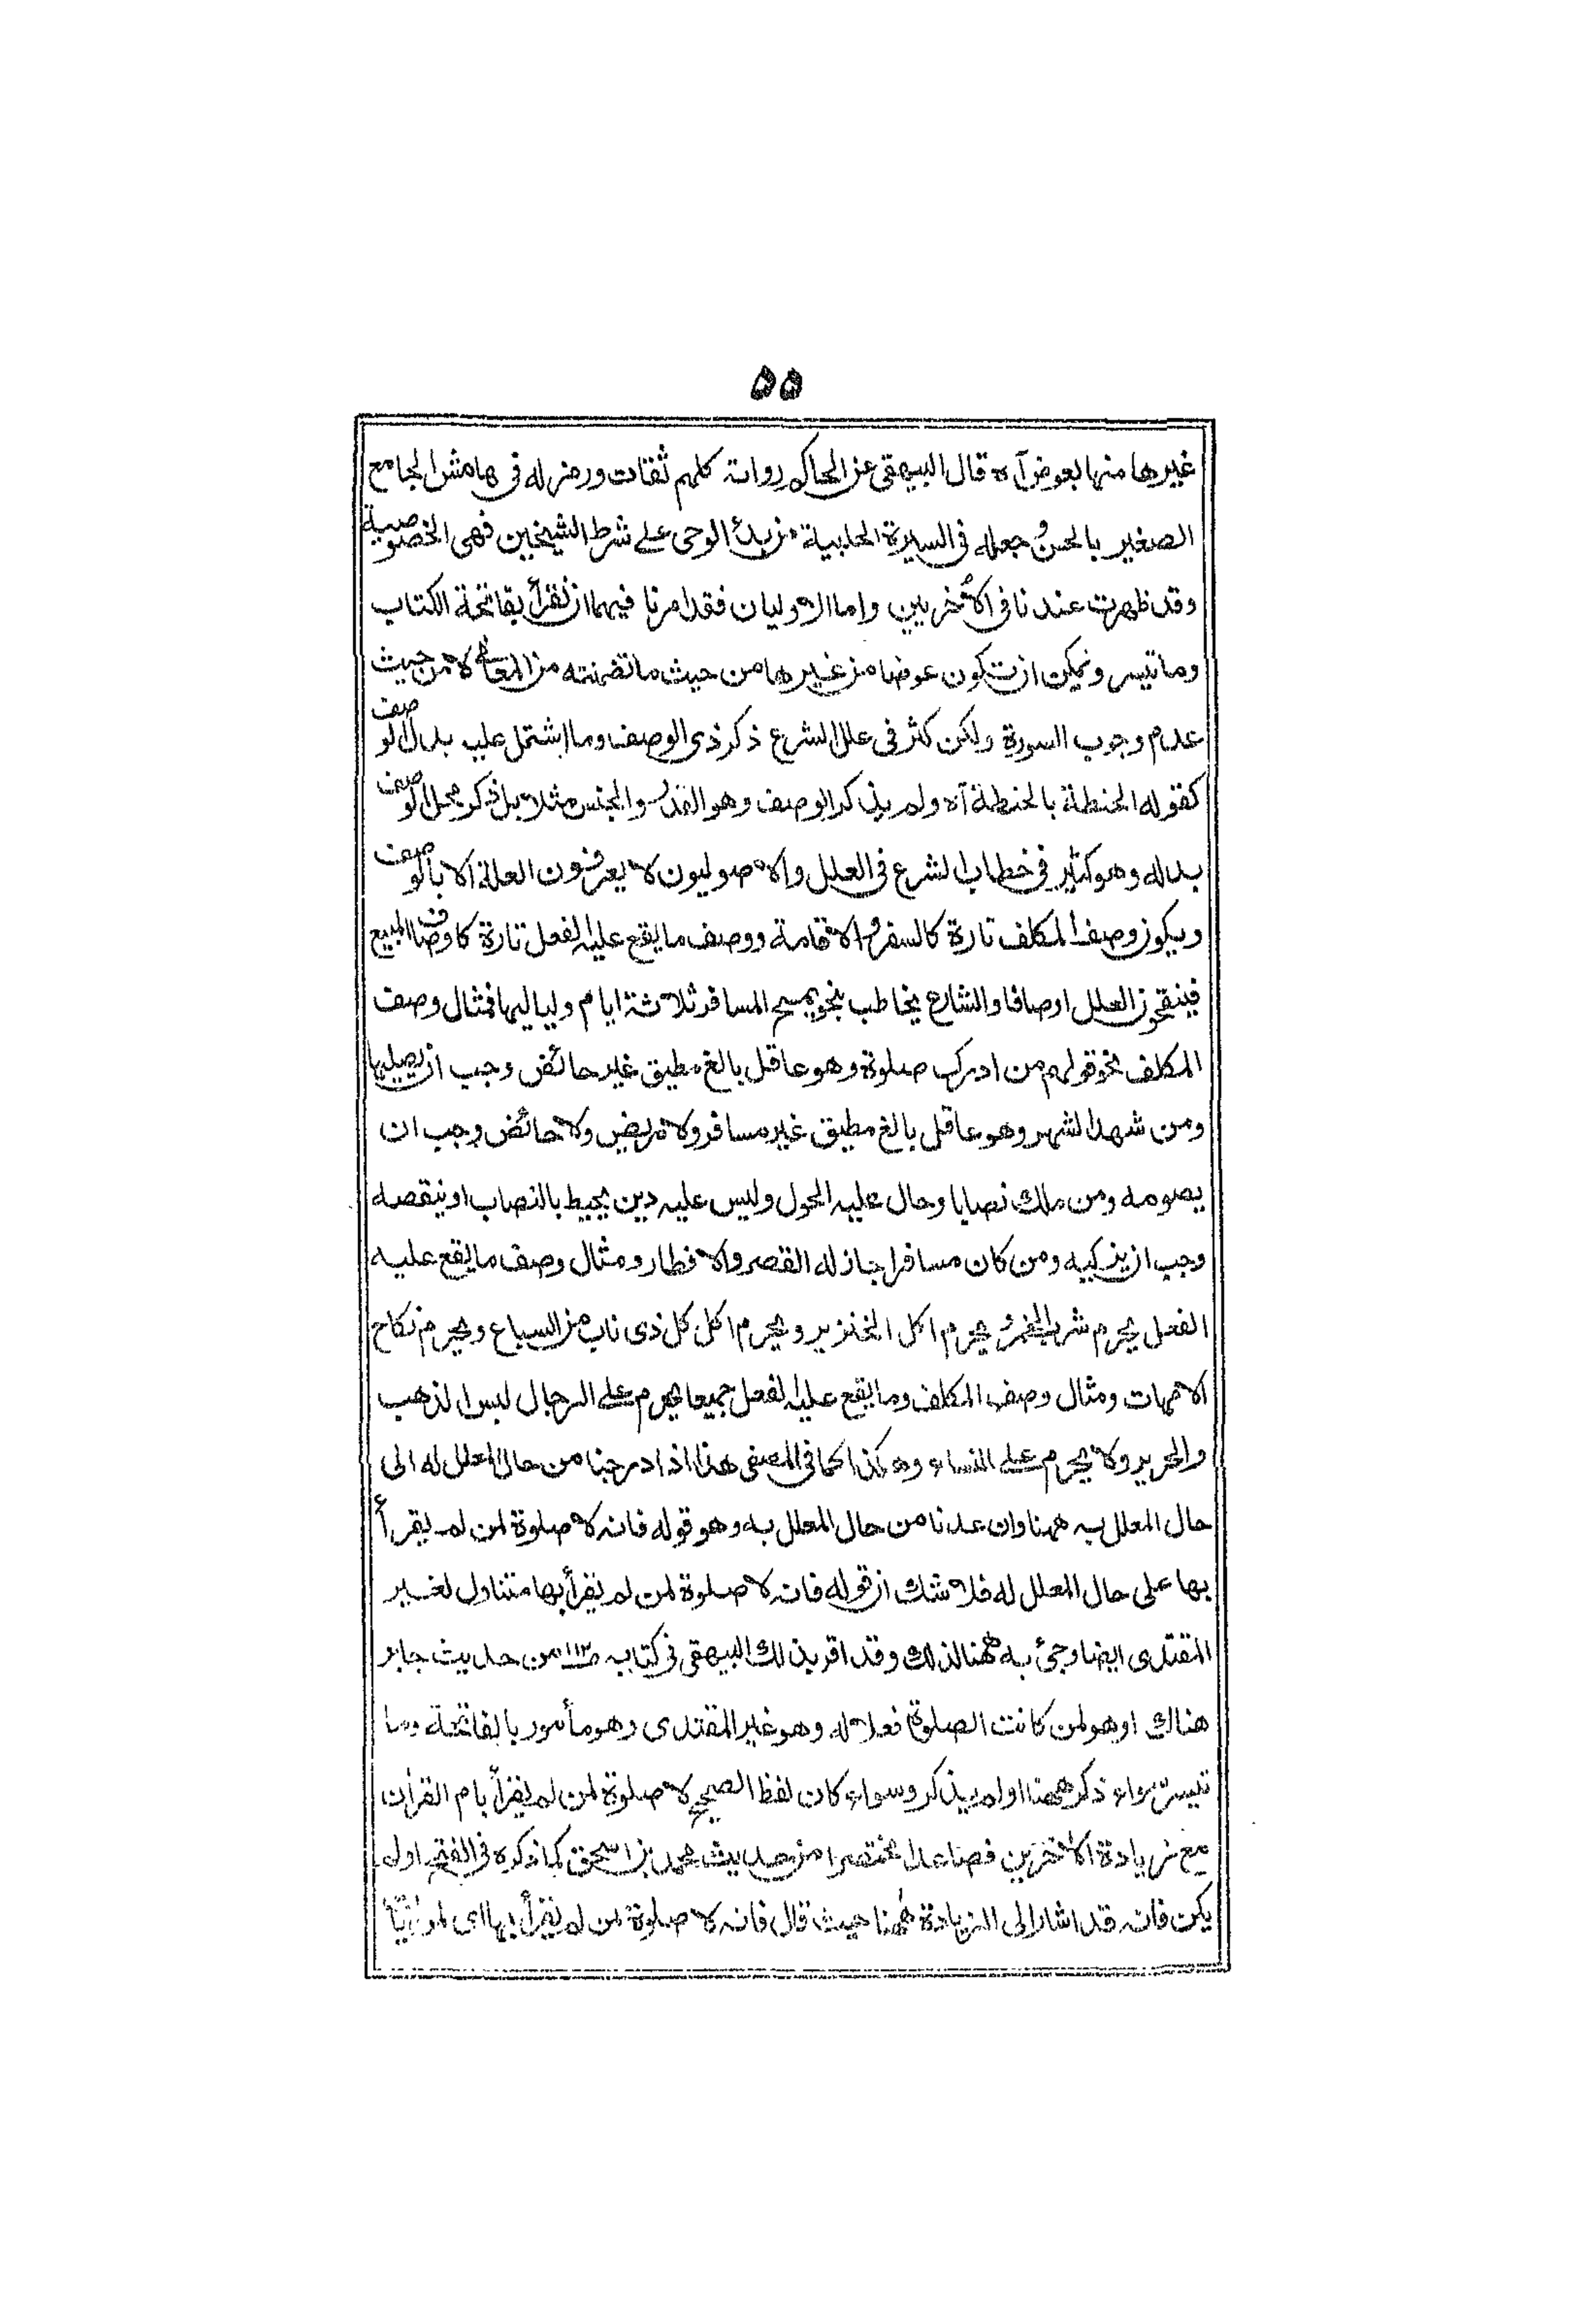 ٥٥
غيرها منها بعوض آه قال البيهقى عن الحاكم رواته كلهم ثقات ورمز له فى هامش الجامع
الصغير بالحسن وجعله فى السيرة الحلبية من بدأ الوحى على شرط الشيخين فهى الخصوصية
وقد ظهرت عندنا فى الأخريين واما الاوليان فقد امرنا فيهما ان نقرأ بفاتحة الكتاب
وما تيسر ويمكن ان تكون عوضا من غيرها من حيث ما تضمنته من المعانى لا من حيث
عدم وجوب السورة ولكن كثر فى علل الشرع ذكر ذى الوصف وما اشتمل عليه بدل الوصف
كقوله الحنطة بالحنطة آه ولم يذكر الوصف وهو القدر والجنس مثلا بل ذكر محل الوصف
بدله وهو كثير فى خطاب الشرع فى العلل والاصوليون لا يعرفون العلة الا بالوصف
ويكون وصف المكلف تارة كالسفر والاقامة ووصف ما يقع عليه الفعل تارة كاوصاف المبيع
فينقحون العلل اوصافا والشارع يخاطب بنحو يمسح المسافر ثلاثة ايام ولياليها فمثال وصف
المكلف نحو قولهم من ادرك صلوة وهو عاقل بالغ مطيق غير حائض وجب ان يصليها
ومن شهد الشهر وهو عاقل بالغ مطيق غير مسافر ولا مريض ولا حائض وجب ان
يصومه ومن ملك نصابا وحال عليه الحول وليس عليه دين يحيط بالنصاب او ينقصه
وجب ان يزكيه ومن كان مسافرا جاز له القصر والافطار ومثال وصف ما يقع عليه
الفعل يحرم شرب الخمر ويحرم اكل الخنزير ويحرم اكل كل ذى ناب من السباع ويحرم نكاح
الامهات ومثال وصف المكلف وما يقع عليه الفعل جميعا يحرم على الرجال لبس الذهب
والحرير ولا يحرم على النساء وهكذا كما فى المصفى هذا اذا درجنا من حال المعلل له الى
حال المعلل به ههنا وان عدنا من حال المعلل به وهو قوله فانه لا صلوة لمن لم يقرأ
بها على حال المعلل له فلا شك ان قوله فانه لا صلوة لمن لم يقرأ بها متناول لغير
المقتدى ايضا وجئ به ههنا لذلك وقد اقر بذلك البيهقى فى كتابه ص١١٣ من حديث جابر
هناك او هو لمن كانت الصلوة فعلا له وهو غير المقتدى وهو مأمور بالفاتحة وما
تيسر سواء ذكر ههنا او لم يذكر وسواء كان لفظ الصحيح لا صلوة لمن لم يقرأ بام القرآن
مع زيادة الأخرين فصاعدا مختصرا من حديث محمد بن اسحق كما ذكره فى الفتح او لم
يكن فانه قد اشار الى الزيادة ههنا حيث قال فانه لا صلوة لمن لم يقرأ بها اى لم